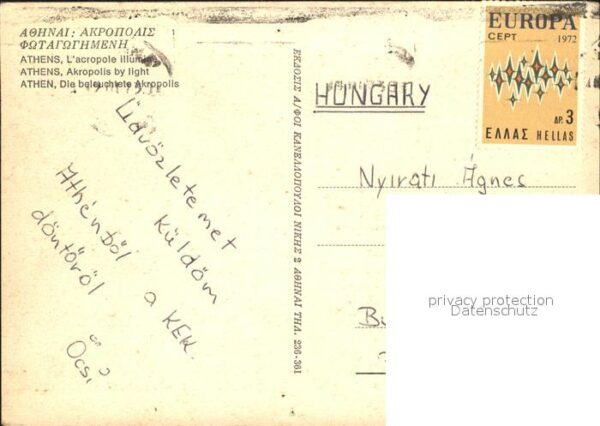 ΑΘΗΝΑΙ: ΑΚΡΟΠΟΛΙΣ
ΦΩΤΑΓΩΓΗΜΕΝΗ
ATHENS, L'acropole illuminée
ATHENS, Akropolis by light
ATHEN, Die beleuchtete Akropolis
Üdvözletemet
küldöm
Athénból
a KEK
döntőről
Öcsi
ΕΚΔΟΣΙΣ Α/ΦΟΙ ΚΑΝΕΛΛΟΠΟΥΛΟΙ ΝΙΚΗΣ 2 ΑΘΗΝΑΙ ΤΗΛ. 236-361
EUROPA
CEPT 1972
ΔΡ. 3
ΕΛΛΑΣ HELLAS
HUNGARY
Nyirati Ágnes
privacy protection
Datenschutz